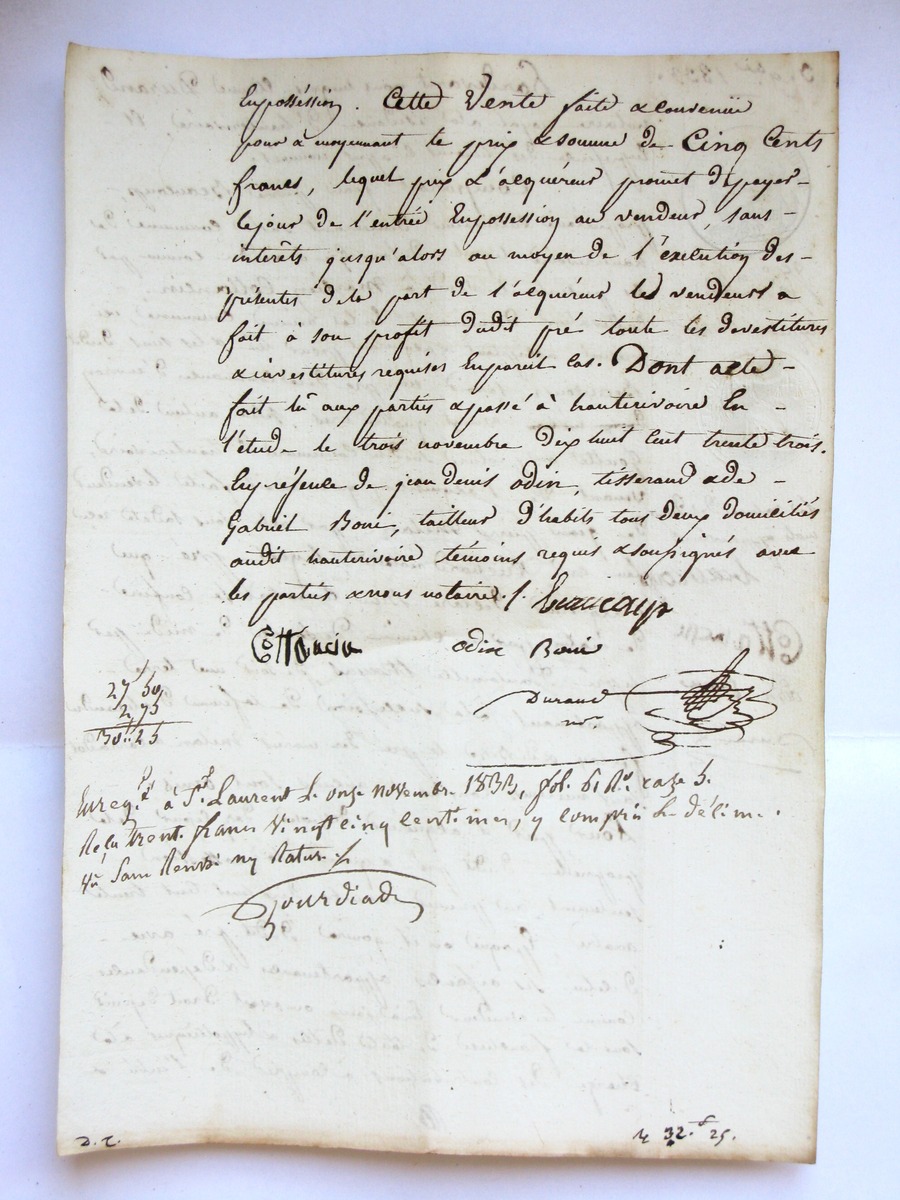 En possession. Cette Vente faite & convenüe
pour & moyennant le prix & somme de Cinq Cents
francs, lequel prix l'acquéreur promet de payer
le jour de l'entrée En possession au vendeur, sans
intérêts jusqu'alors au moyen de l'exécution des
présentes de la part de l'acquéreur le vendeur a
fait à son profit dudit pré toute les devestitures
& investitures requises En pareil cas. Dont acte
fait lû aux parties & passé à hauterivoire En
l'étude le trois novembre dix huit Cent trente trois.
En présence de jean denis odin, tisserand & de
Gabriel Boni, tailleur d'habits tous deux domiciliés
audit hauterivoire témoins requis & soussignés avec
les parties & nous notaire.
odin Boni
Durand
nre
27 50
2,75
30 " 25
Enreg.é à St. Laurent le onze novembre 1833, fol. 61 Ro. case 5.
Reçu trente francs Vingt cinq centimes, y compris le décime.
Sans Renvoi ny Rature
Jourdiad
D. C.
32.f 25.